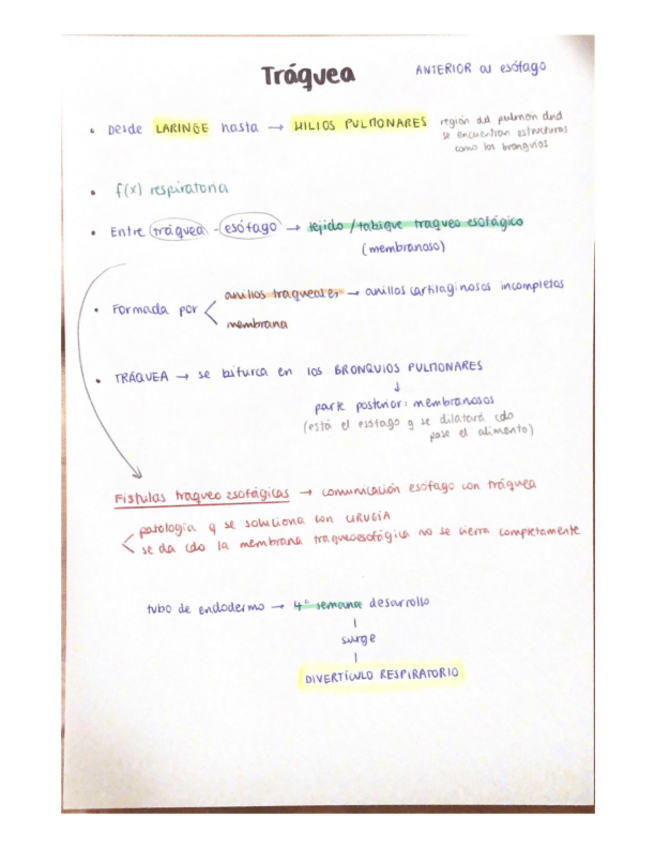 Tráquea
ANTERIOR al esófago
• Desde LARINGE hasta → HILIOS PULMONARES
región del pulmón dnd
se encuentran estructuras
como los bronquios
• f(x) respiratoria
• Entre tráquea - esófago → tejido / tabique traqueo esofágico
(membranoso)
• Formada por < anillos traqueales → anillos cartilaginosos incompletos
membrana
• TRÁQUEA → se bifurca en los BRONQUIOS PULMONARES
↓
parte posterior: membranosos
(está el esófago y se dilatará cdo
pase el alimento)
Fistulas traqueo esofágicas → comunicación esófago con tráquea
< patología q se soluciona con CIRUGÍA
se da cdo la membrana traqueoesofágica no se cierra completamente
tubo de endodermo → 4ª semana desarrollo
|
surge
|
DIVERTÍCULO RESPIRATORIO